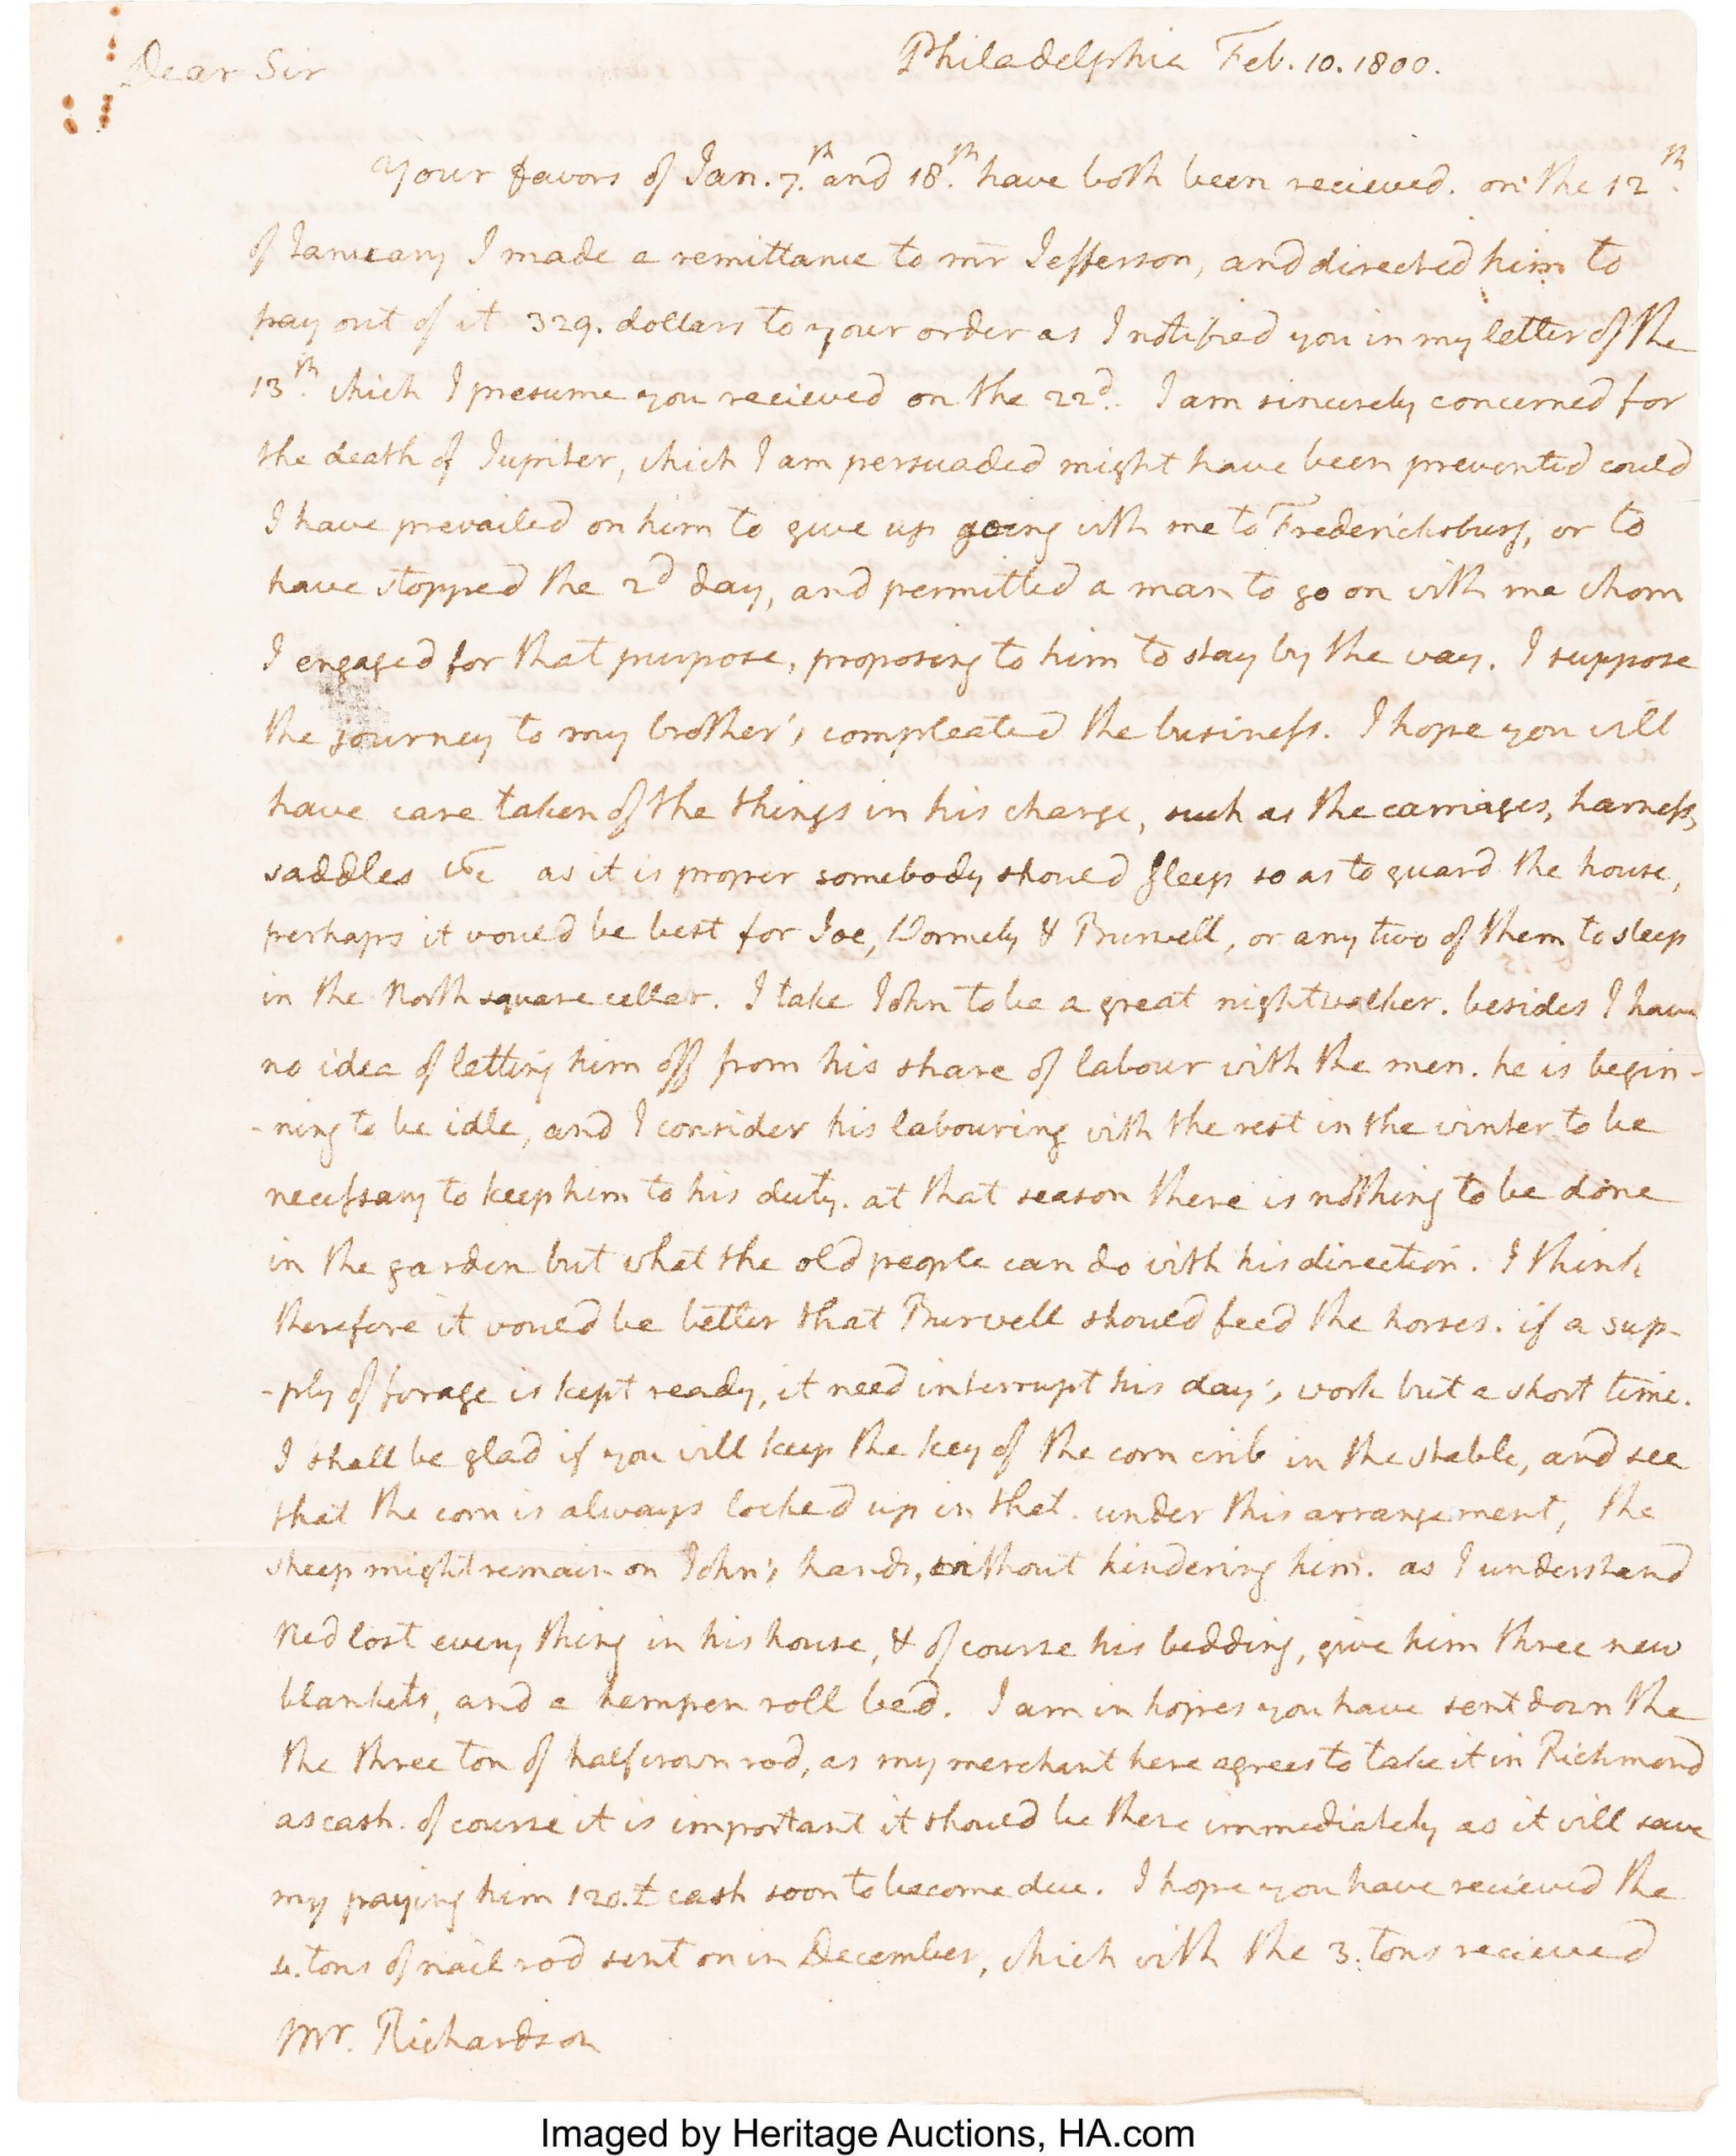 Dear Sir
Philadelphia Feb. 10. 1800.
Your favors of Jan. 7th. and 18th. have both been recieved. on the 12th.
of January I made a remittance to mr Jefferson, and directed him to
pay out of it 329. dollars to your order as I notified you in my letter of the
13th. which I presume you recieved on the 22d. I am sincerely concerned for
the death of Jupiter, which I am persuaded might have been prevented could
I have prevailed on him to give up going with me to Fredericksburg, or to
have stopped the 2d day, and permitted a man to go on with me whom
I engaged for that purpose, proposing to him to stay by the way. I suppose
the journey to my brother's compleated the business. I hope you will
have care taken of the things in his charge, such as the carriages, harness,
saddles &c as it is proper somebody should sleep so as to guard the house,
perhaps it would be best for Joe, Wormely & Burwell, or any two of them to sleep
in the North square cellar. I take John to be a great nightwalker. besides I have
no idea of letting him off from his share of labour with the men. he is begin-
-ning to be idle, and I consider his labouring with the rest in the winter to be
necessary to keep him to his duty. at that season there is nothing to be done
in the garden but what the old people can do with his direction. I think
therefore it would be better that Burwell should feed the horses. if a sup-
-ply of forage is kept ready, it need interrupt his day's work but a short time.
I shall be glad if you will keep the key of the corn crib in the stable, and see
that the corn is always locked up in that. under this arrangement, the
sheep might remain on John's hands, without hindering him. as I understand
Ned lost every thing in his house, & of course his bedding, give him three new
blankets, and a hempen roll bed. I am in hopes you have sent down the
the three ton of half crown rod, as my merchant here agrees to take it in Richmond
as cash. of course it is important it should be there immediately as it will save
my paying him 120.£ cash soon to become due. I hope you have recieved the
4. tons of nail rod sent on in December, which with the 3. tons recieved
Mr. Richardson
Imaged by Heritage Auctions, HA.com